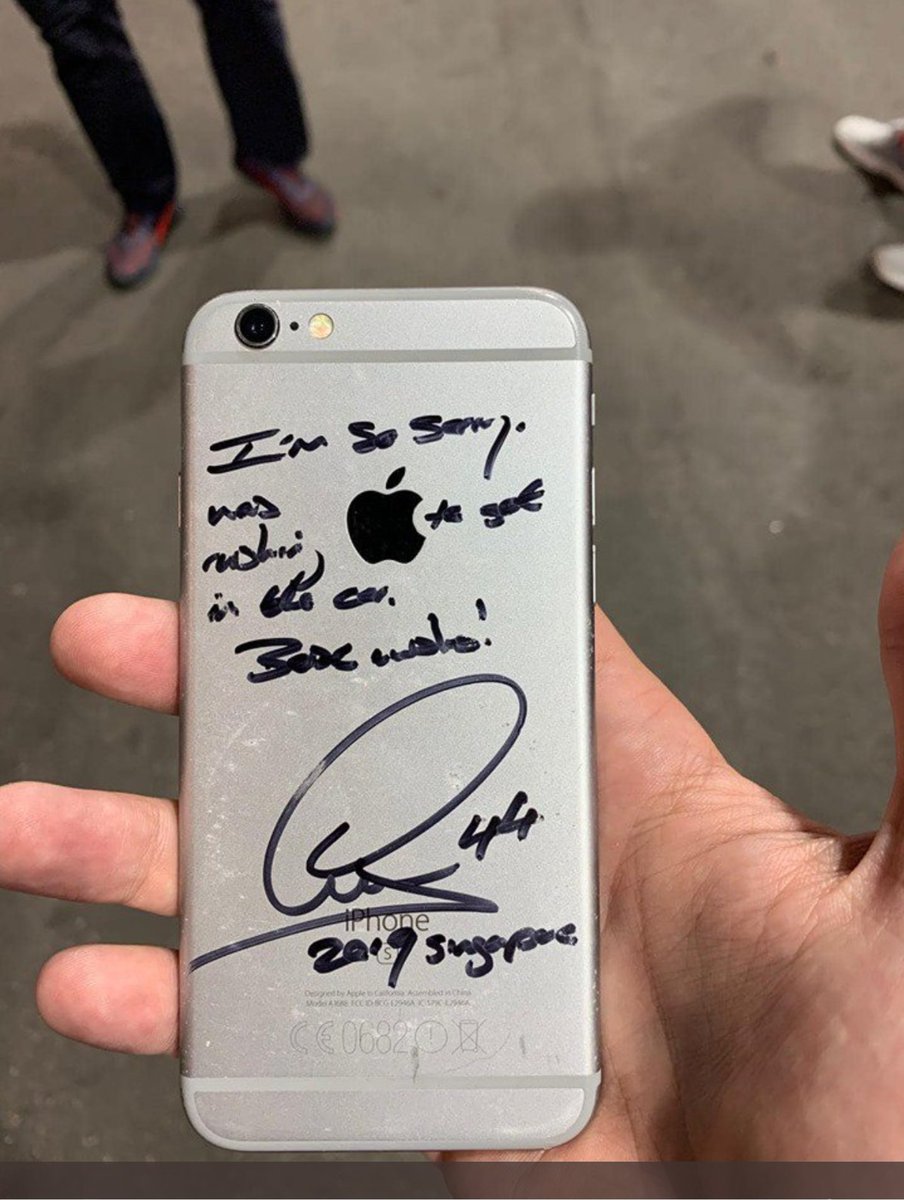 I'm so sorry.
was to get
rushing
in the car.
Best wishes!
44
iPhone
2019 Singapore
S
Designed by Apple in California. Assembled in China
Model A1688 FCC ID:BCG-E2946A IC:579C-E2946A
CE0682